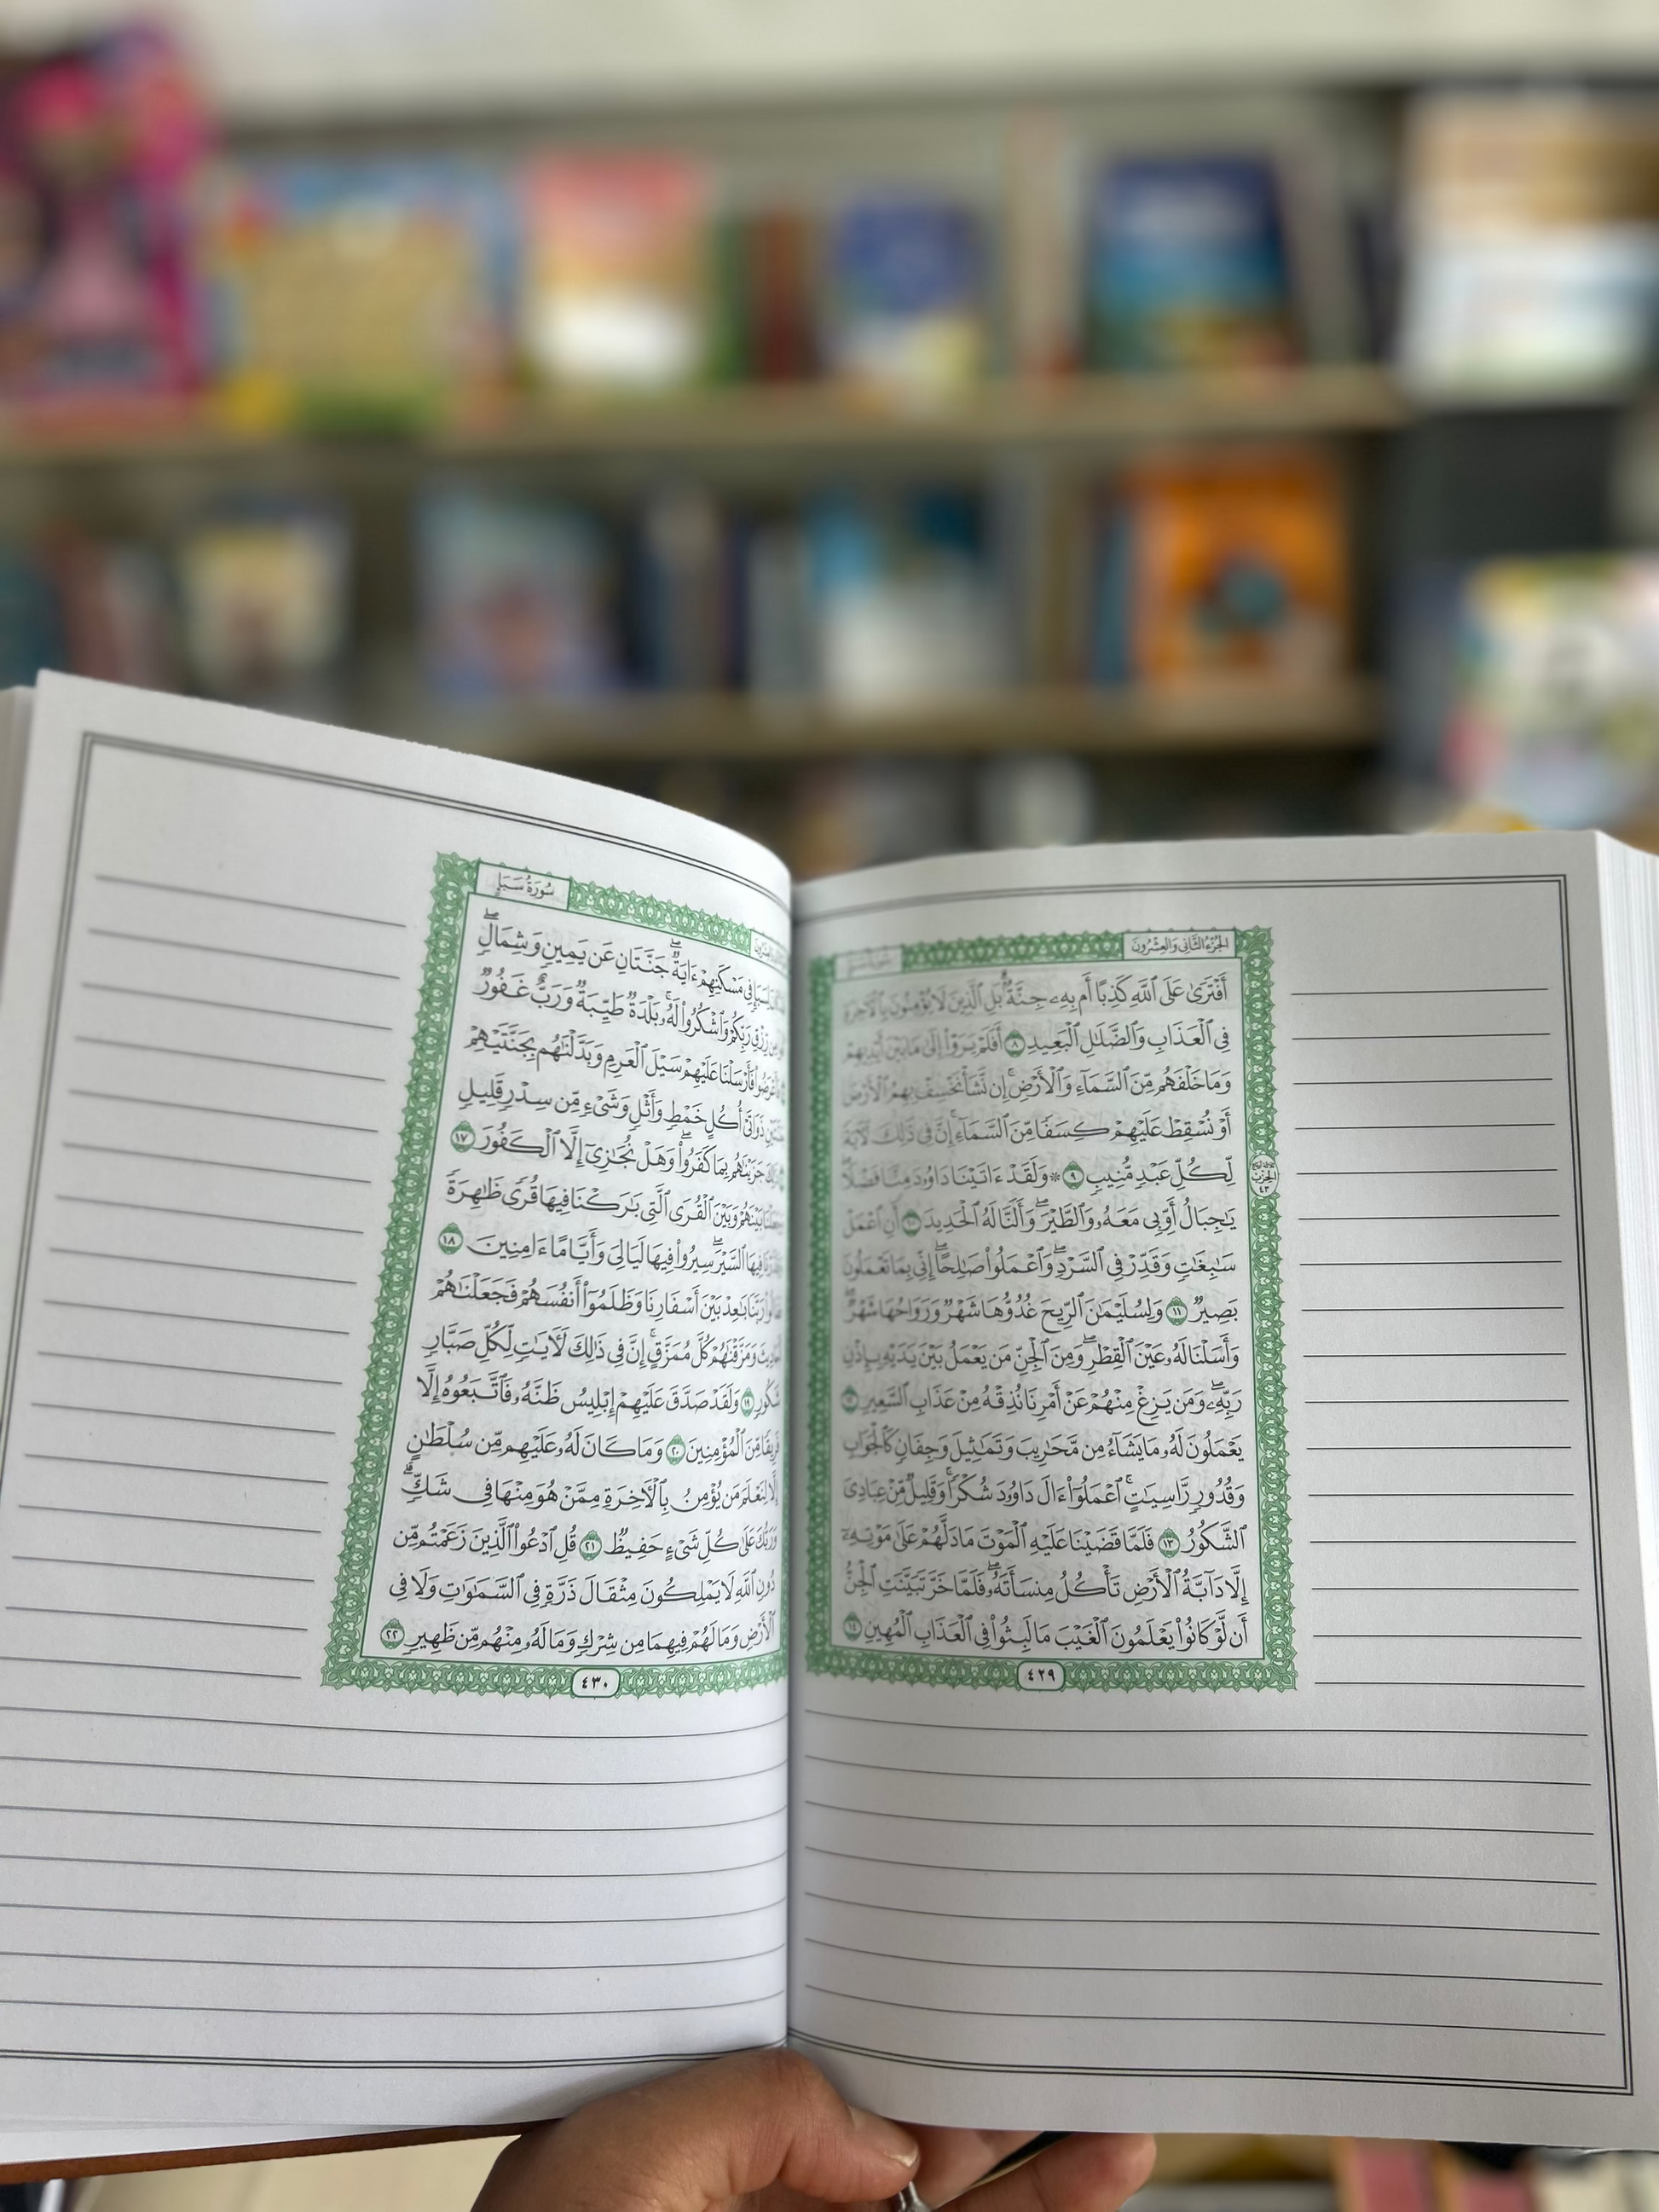 الجزء الثاني والعشرون
أَفْتَرَىٰ عَلَى ٱللَّهِ كَذِبًا أَم بِهِۦ جِنَّةٌۢ ۗ بَلِ ٱلَّذِينَ لَا يُؤْمِنُونَ بِٱلْءَاخِرَةِ
فِى ٱلْعَذَابِ وَٱلضَّلَٰلِ ٱلْبَعِيدِ ٨ أَفَلَمْ يَرَوْا۟ إِلَىٰ مَا بَيْنَ أَيْدِيهِمْ
وَمَا خَلْفَهُم مِّنَ ٱلسَّمَآءِ وَٱلْأَرْضِ ۚ إِن نَّشَأْ نَخْسِفْ بِهِمُ ٱلْأَرْضَ
أَوْ نُسْقِطْ عَلَيْهِمْ كِسَفًا مِّنَ ٱلسَّمَآءِ ۚ إِنَّ فِى ذَٰلِكَ لَءَايَةً
لِّكُلِّ عَبْدٍ مُّنِيبٍ ٩ ۞ وَلَقَدْ ءَاتَيْنَا دَاوُۥدَ مِنَّا فَضْلًا ۖ
يَٰجِبَالُ أَوِّبِى مَعَهُۥ وَٱلطَّيْرَ ۖ وَأَلَنَّا لَهُ ٱلْحَدِيدَ ١٠ أَنِ ٱعْمَلْ
سَٰبِغَٰتٍ وَقَدِّرْ فِى ٱلسَّرْدِ ۖ وَٱعْمَلُوا۟ صَٰلِحًا ۖ إِنِّى بِمَا تَعْمَلُونَ
بَصِيرٌ ١١ وَلِسُلَيْمَٰنَ ٱلرِّيحَ غُدُوُّهَا شَهْرٌ وَرَوَاحُهَا شَهْرٌ ۖ
وَأَسَلْنَا لَهُۥ عَيْنَ ٱلْقِطْرِ ۖ وَمِنَ ٱلْجِنِّ مَن يَعْمَلُ بَيْنَ يَدَيْهِ بِإِذْنِ
رَبِّهِۦ ۖ وَمَن يَزِغْ مِنْهُمْ عَنْ أَمْرِنَا نُذِقْهُ مِنْ عَذَابِ ٱلسَّعِيرِ ١٢
يَعْمَلُونَ لَهُۥ مَا يَشَآءُ مِن مَّحَٰرِيبَ وَتَمَٰثِيلَ وَجِفَانٍ كَٱلْجَوَابِ
وَقُدُورٍ رَّاسِيَٰتٍ ۚ ٱعْمَلُوٓا۟ ءَالَ دَاوُۥدَ شُكْرًا ۚ وَقَلِيلٌ مِّنْ عِبَادِىَ
ٱلشَّكُورُ ١٣ فَلَمَّا قَضَيْنَا عَلَيْهِ ٱلْمَوْتَ مَا دَلَّهُمْ عَلَىٰ مَوْتِهِۦٓ
إِلَّا دَآبَّةُ ٱلْأَرْضِ تَأْكُلُ مِنسَأَتَهُۥ ۖ فَلَمَّا خَرَّ تَبَيَّنَتِ ٱلْجِنُّ
أَن لَّوْ كَانُوا۟ يَعْلَمُونَ ٱلْغَيْبَ مَا لَبِثُوا۟ فِى ٱلْعَذَابِ ٱلْمُهِينِ ١٤
٤٢٩
سورة سبإ
فِى مَسْكَنِهِمْ ءَايَةٌ ۖ جَنَّتَانِ عَن يَمِينٍ وَشِمَالٍ ۖ
رِّزْقِ رَبِّكُمْ وَٱشْكُرُوا۟ لَهُۥ ۚ بَلْدَةٌ طَيِّبَةٌ وَرَبٌّ غَفُورٌ
فَأَرْسَلْنَا عَلَيْهِمْ سَيْلَ ٱلْعَرِمِ وَبَدَّلْنَٰهُم بِجَنَّتَيْهِمْ
ذَوَاتَىْ أُكُلٍ خَمْطٍ وَأَثْلٍ وَشَىْءٍ مِّن سِدْرٍ قَلِيلٍ
جَزَيْنَٰهُم بِمَا كَفَرُوا۟ ۖ وَهَلْ نُجَٰزِىٓ إِلَّا ٱلْكَفُورَ ١٧
بَيْنَهُمْ وَبَيْنَ ٱلْقُرَى ٱلَّتِى بَٰرَكْنَا فِيهَا قُرًى ظَٰهِرَةً
فِيهَا ٱلسَّيْرَ ۖ سِيرُوا۟ فِيهَا لَيَالِىَ وَأَيَّامًا ءَامِنِينَ ١٨
رَبَّنَا بَٰعِدْ بَيْنَ أَسْفَارِنَا وَظَلَمُوٓا۟ أَنفُسَهُمْ فَجَعَلْنَٰهُمْ
وَمَزَّقْنَٰهُمْ كُلَّ مُمَزَّقٍ ۚ إِنَّ فِى ذَٰلِكَ لَءَايَٰتٍ لِّكُلِّ صَبَّارٍ
شَكُورٍ ١٩ وَلَقَدْ صَدَّقَ عَلَيْهِمْ إِبْلِيسُ ظَنَّهُۥ فَٱتَّبَعُوهُ إِلَّا
فَرِيقًا مِّنَ ٱلْمُؤْمِنِينَ ٢٠ وَمَا كَانَ لَهُۥ عَلَيْهِم مِّن سُلْطَٰنٍ
إِلَّا لِنَعْلَمَ مَن يُؤْمِنُ بِٱلْءَاخِرَةِ مِمَّنْ هُوَ مِنْهَا فِى شَكٍّ ۗ
وَرَبُّكَ عَلَىٰ كُلِّ شَىْءٍ حَفِيظٌ ٢١ قُلِ ٱدْعُوا۟ ٱلَّذِينَ زَعَمْتُم مِّن
دُونِ ٱللَّهِ لَا يَمْلِكُونَ مِثْقَالَ ذَرَّةٍ فِى ٱلسَّمَٰوَٰتِ وَلَا فِى
ٱلْأَرْضِ وَمَا لَهُمْ فِيهِمَا مِن شِرْكٍ وَمَا لَهُۥ مِنْهُم مِّن ظَهِيرٍ ٢٢
٤٣٠